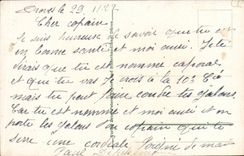 le 29
Cher copain
Je suis heureuse de savoir que tu es
en bonne santé et moi aussi. Je te
dirais que tu est nommé caporal
et que tu vas je crois à la 10e Cie
mais tu peut faire contre tes galons.
Car tu est nommé et moi aussi et on
porte les galons Ton copain qui te
serre une cordiale Poignée de main